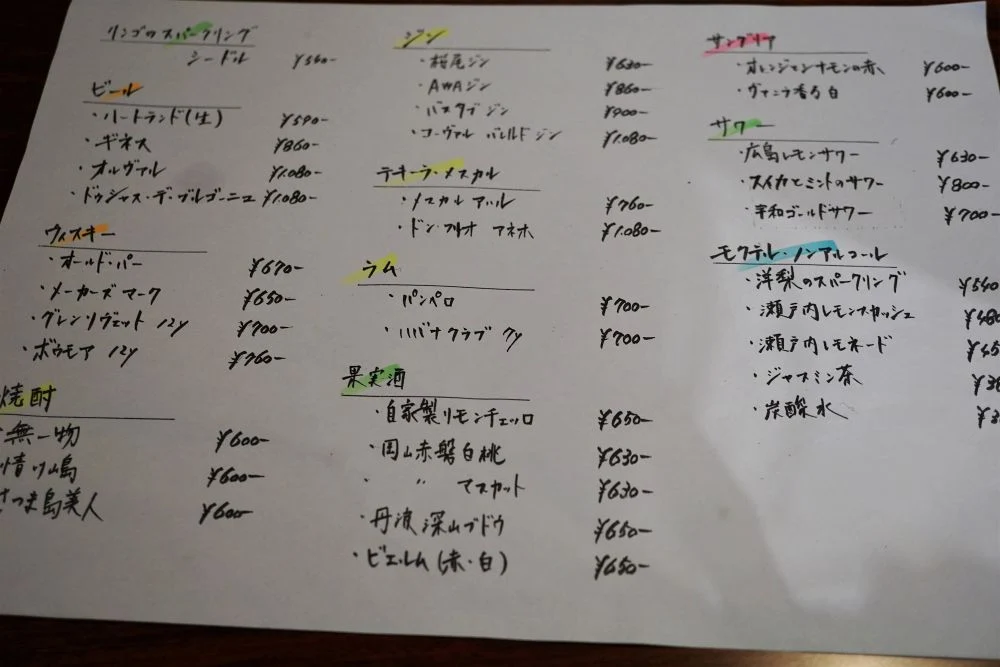 リンゴのスパークリング
シードル ¥560-
ビール
・ハートランド(生) ¥590-
・ギネス ¥860-
・オルヴァル ¥1.080-
・ドゥシャス・デ・ブルゴーニュ ¥1.080-
ウィスキー
・オールド・パー ¥670-
・メーカーズマーク ¥650-
・グレンリヴェット 12y ¥700-
・ボウモア 12y ¥760-
焼酎
無一物 ¥600-
情け嶋 ¥600-
さつま島美人 ¥600-
ジン
・桜尾ジン ¥630-
・AWAジン ¥860-
・バスタブジン ¥900-
・コーヴァル バレルドジン ¥1.080-
テキーラ・メスカル
・メスカル アハル ¥760-
・ドン・フリオ アネホ ¥1.080-
ラム
・パンペロ ¥700-
・ハバナクラブ 7y ¥700-
果実酒
・自家製リモンチェッロ ¥650-
・岡山赤磐白桃 ¥630-
・ 〃 マスカット ¥630-
・丹波深山ブドウ ¥650-
・ビエルム(赤・白) ¥650-
サングリア
・オレンジシナモンの赤 ¥600-
・ヴァニラ香る白 ¥600-
サワー
・広島レモンサワー ¥630-
・スイカとミントのサワー ¥800-
・宇和ゴールドサワー ¥700-
モクテル・ノンアルコール
・洋梨のスパークリング ¥540
・瀬戸内レモンスカッシュ ¥480
・瀬戸内レモネード ¥45
・ジャスミン茶 ¥3
・炭酸水 ¥3